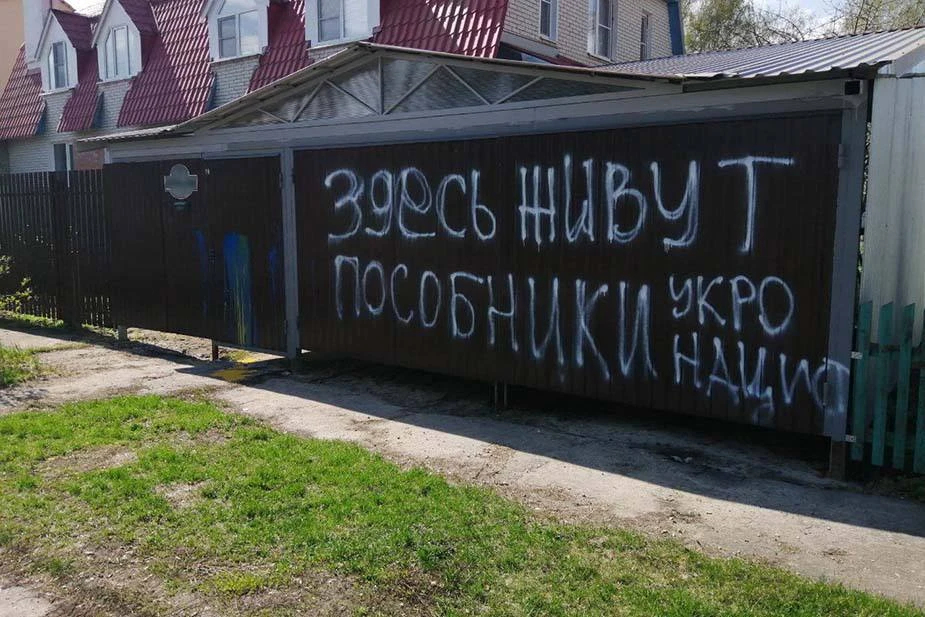 Здесь живут
пособники укро
нациф